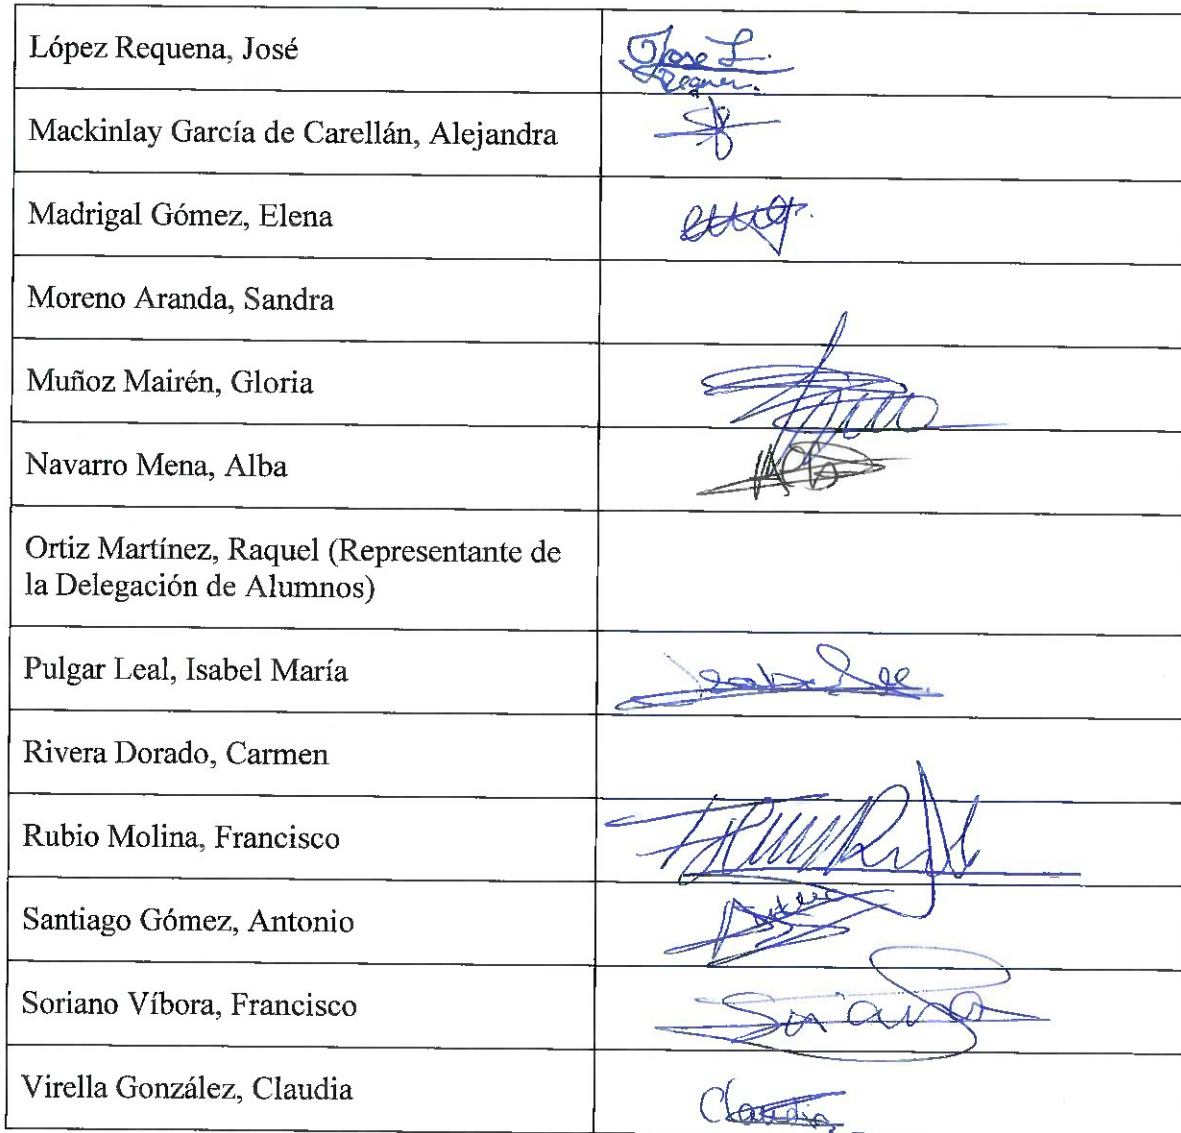 López Requena, José
Jose L.
Requen.
Mackinlay García de Carellán, Alejandra
Madrigal Gómez, Elena
Moreno Aranda, Sandra
Muñoz Mairén, Gloria
Navarro Mena, Alba
Ortiz Martínez, Raquel (Representante de
la Delegación de Alumnos)
Pulgar Leal, Isabel María
Rivera Dorado, Carmen
Rubio Molina, Francisco
Santiago Gómez, Antonio
Soriano Víbora, Francisco
Soriano
Virella González, Claudia
Claudia